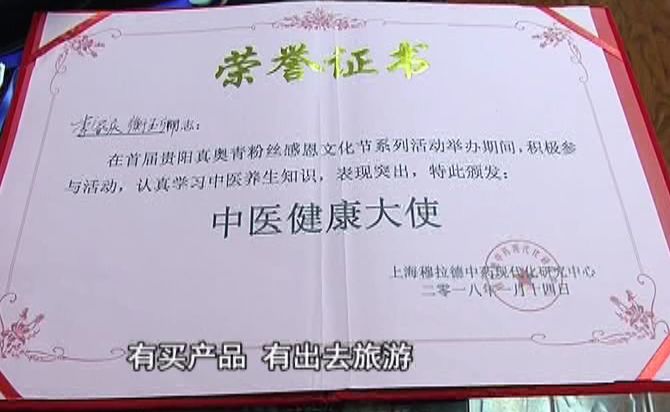 荣誉证书
同志：
在首届贵阳真奥青粉丝感恩文化节系列活动举办期间，积极参
与活动，认真学习中医养生知识，表现突出，特此颁发：
中医健康大使
上海穆拉德中药现代化研究中心
二零一八年一月十四日
有买产品 有出去旅游